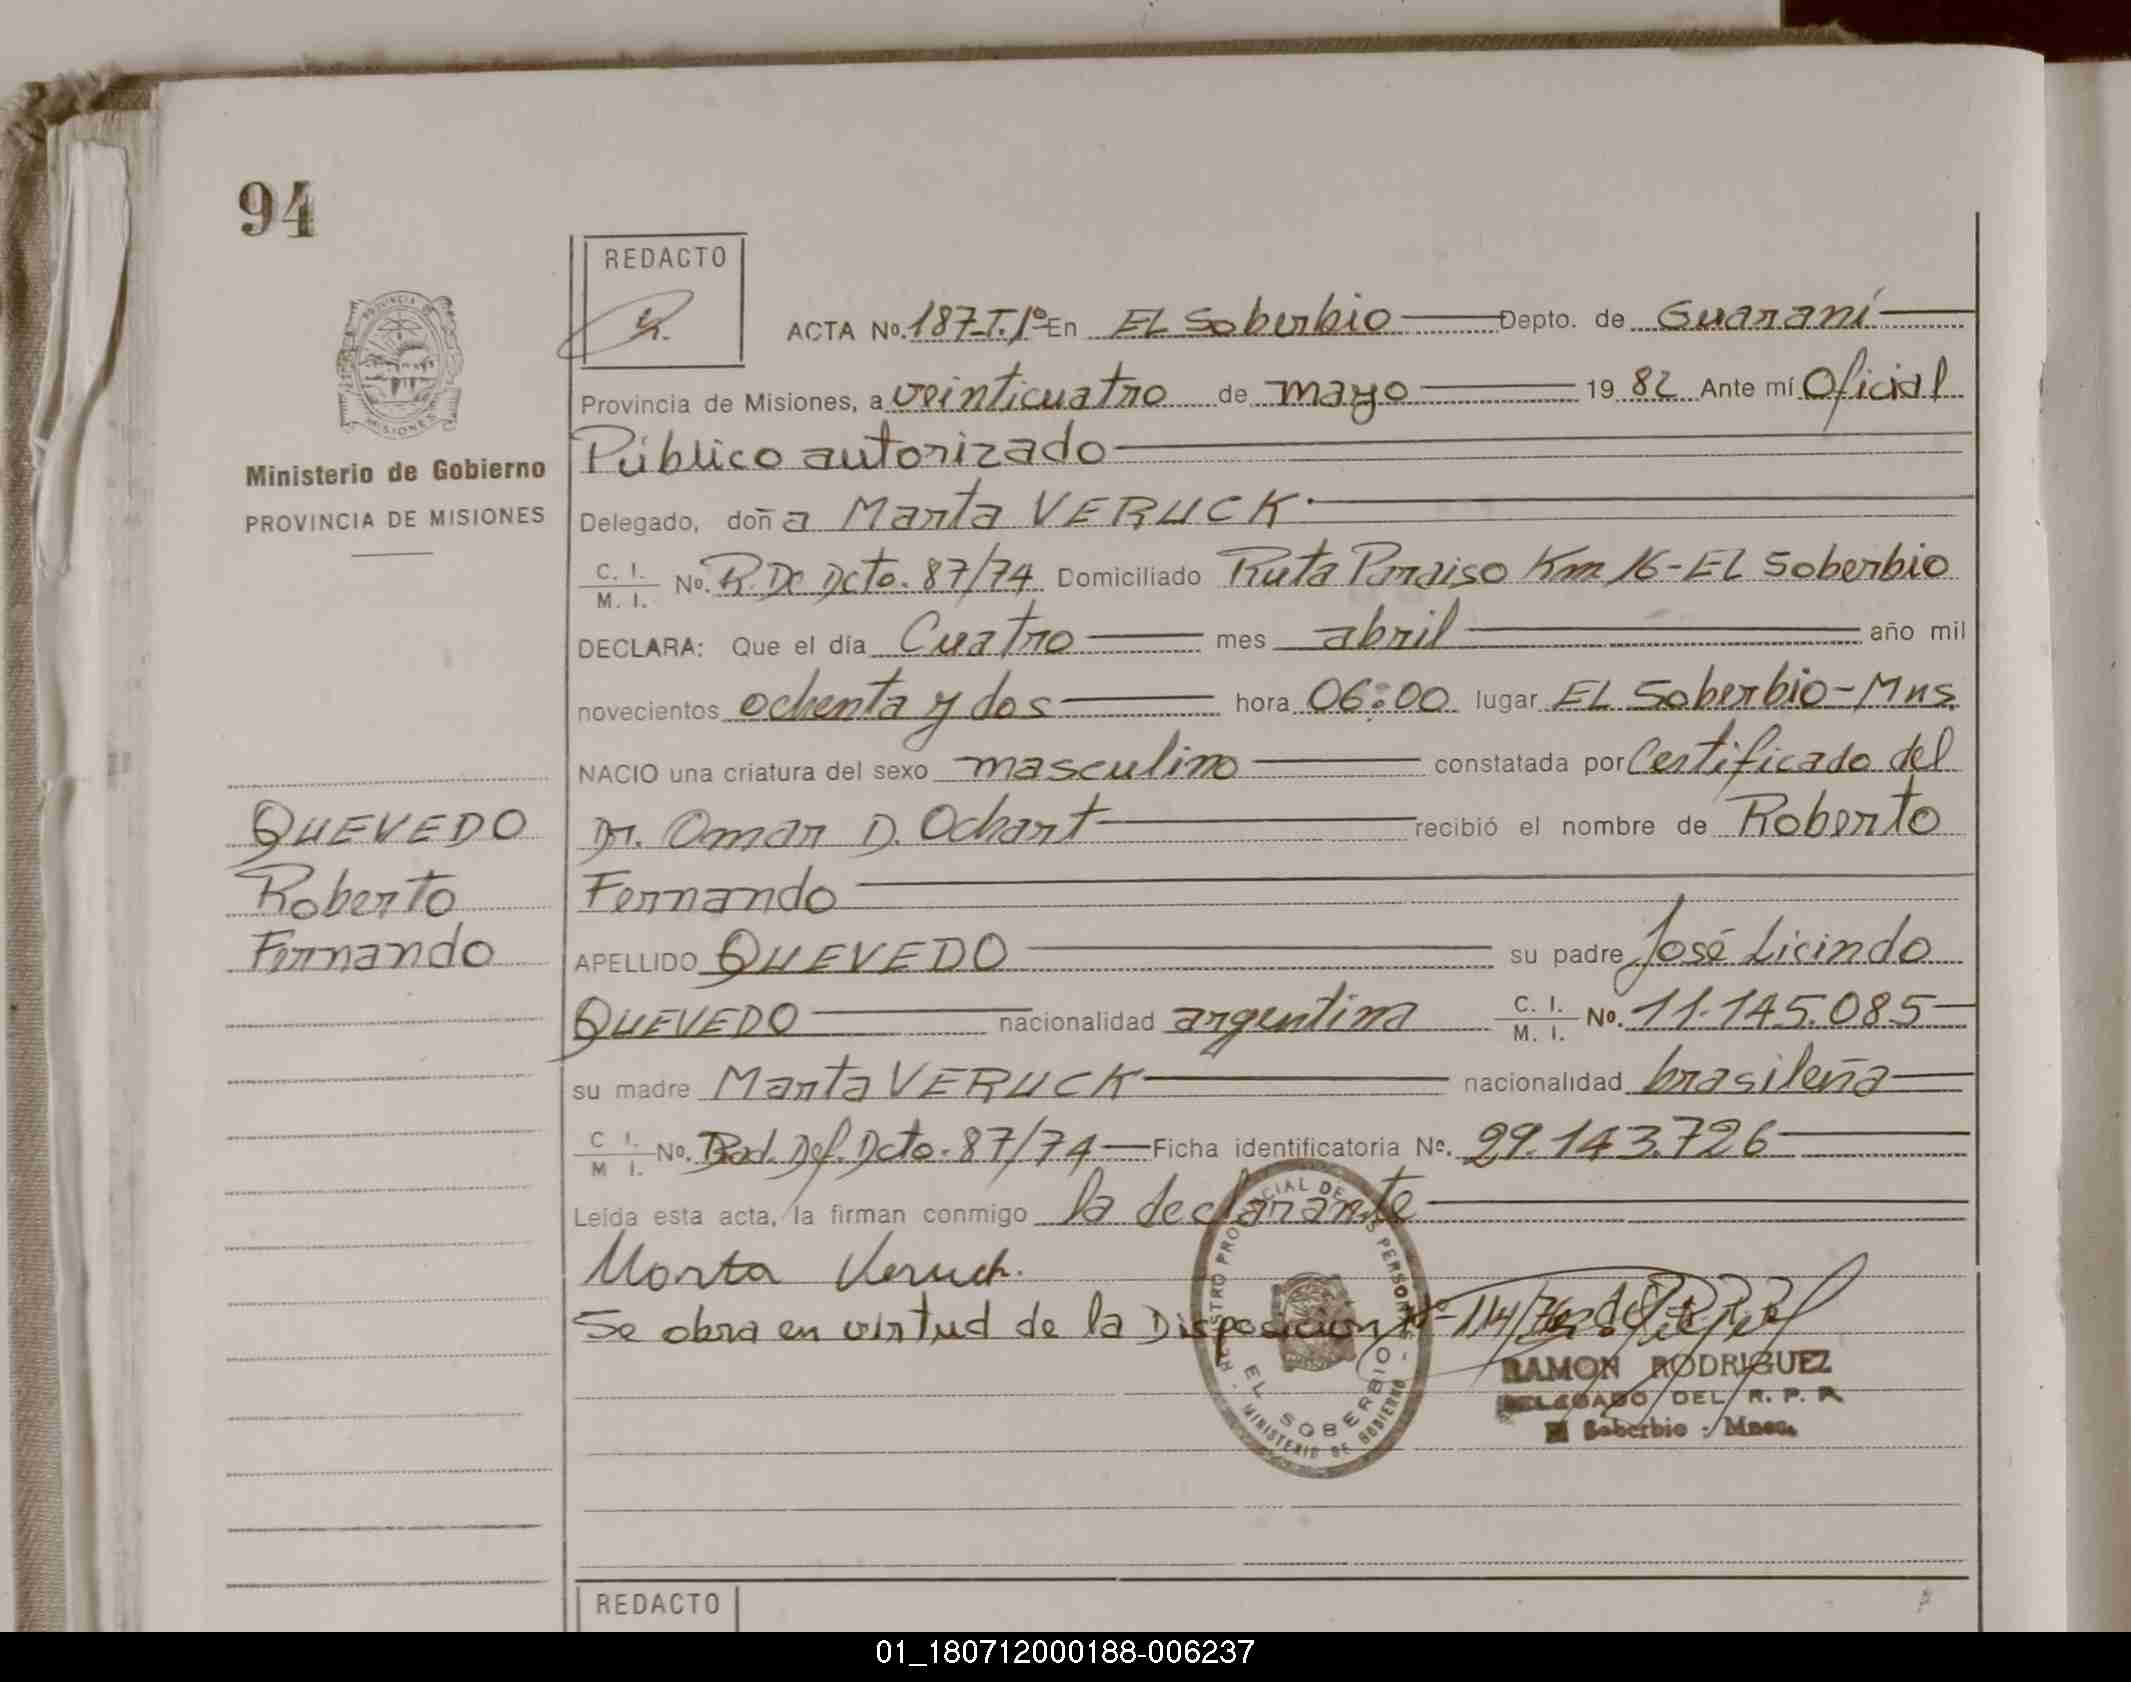 94
REDACTO
ACTA No. 187-T.1º En EL Soberbio Depto. de Guaraní
Provincia de Misiones, a veinticuatro de mayo 19 82 Ante mí Oficial
PROVINCIA DE MISIONES
Público autorizado
Ministerio de Gobierno
PROVINCIA DE MISIONES
Delegado, doña Marta VERUCK
C. I. / M. I. No. R. De Dcto. 87/74 Domiciliado Ruta Paraiso Km 16 - EL Soberbio
DECLARA: Que el día Cuatro mes abril año mil
novecientos ochenta y dos hora 06:00 lugar EL Soberbio - Mns.
NACIO una criatura del sexo masculino constatada por Certificado del
Dr. Omar D. Ochart recibió el nombre de Roberto
Fernando
QUEVEDO
Roberto
Fernando
APELLIDO QUEVEDO su padre José Licindo
QUEVEDO nacionalidad argentina C. I. / M. I. No. 11.145.085
su madre Marta VERUCK nacionalidad brasileña
C I. / M I. No. Rad. Def. Dcto. 87/74 Ficha identificatoria No. 29.143.726
Leída esta acta, la firman conmigo la declarante
Marta Veruck.
Se obra en virtud de la Disposición Nº 114/76
REGISTRO PROVINCIAL DE LAS PERSONAS
EL SOBERBIO
MINISTERIO DE GOBIERNO
RAMON RODRIGUEZ
DELEGADO DEL R. P. P.
El Soberbio - Mnes.
REDACTO
01_180712000188-006237